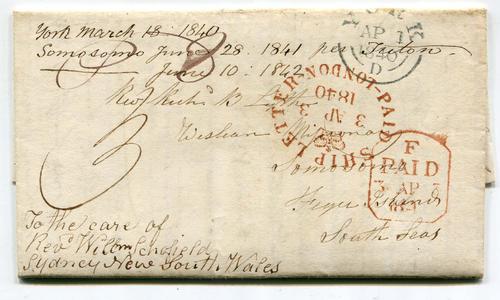 York March 18 1840
Somosomo June 28. 1841 per Triton
June 10. 1842
8
YORK
AP 1
1840
D
Revd Richd B Lyth
PAID SHIP LETTER LONDON
3 AP 3
1840
Wesleyan Missionary
Somosomo
Feejee Islands
South Seas
3
F
PAID
3 AP 3
To the care of
Revd Willm Schofield
Sydney New South Wales